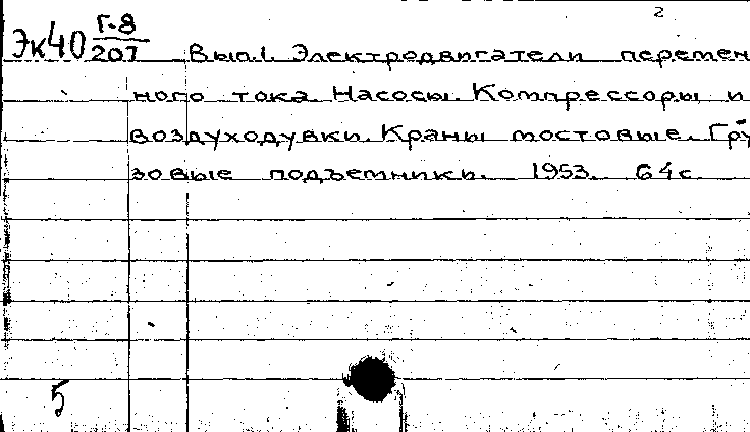 2
Эк40 Г-8/207 Вып.1. Электродвигатели перемен
ного тока. Насосы. Компрессоры и
воздуходувки. Краны мостовые. Гру
зовые подъемники. 1953. 64с.
5